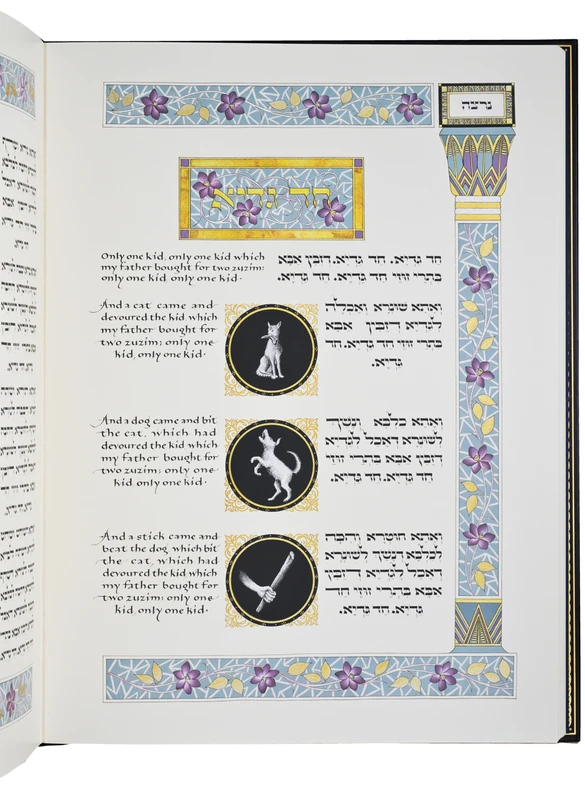 נרצה
חד גדיא
Only one kid, only one kid which
my father bought for two zuzim;
only one kid only one kid.
חד גדיא. חד גדיא. דזבין אבא
בתרי זוזי חד גדיא. חד גדיא.
And a cat came and
devoured the kid, which
my father bought for
two zuzim; only one
kid, only one kid.
ואתא שונרא ואכלה
לגדיא דזבין אבא
בתרי זוזי חד גדיא. חד
גדיא.
And a dog came and bit
the cat, which had
devoured the kid which
my father bought for
two zuzim; only one
kid only one kid.
ואתא כלבא ונשך
לשונרא דאכל לגדיא
דזבין אבא בתרי זוזי
חד גדיא. חד גדיא.
And a stick came and
beat the dog which bit
the cat, which had
devoured the kid which
my father bought for
two zuzim; only one
kid, only one kid.
ואתא חוטרא והכה
לכלבא דנשך לשונרא
דאכל לגדיא דזבין
אבא בתרי זוזי חד
גדיא. חד גדיא.